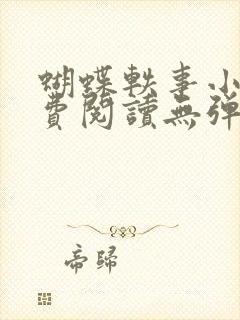 蝴蝶軼事小
費閱讀無彈
帝歸